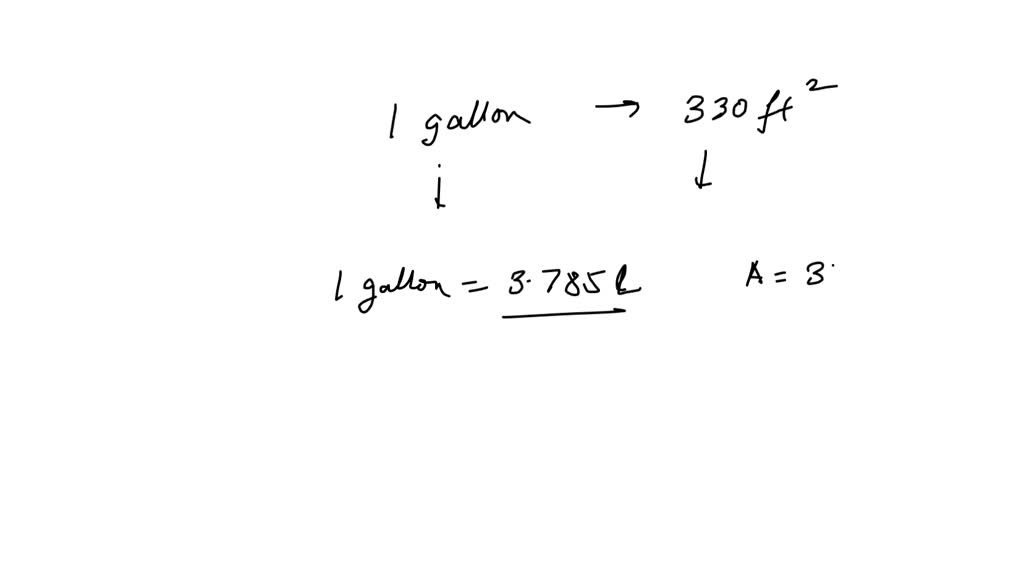 1 gallon → 330 ft²
↓ ↓
1 gallon = 3.785 L A = 3.